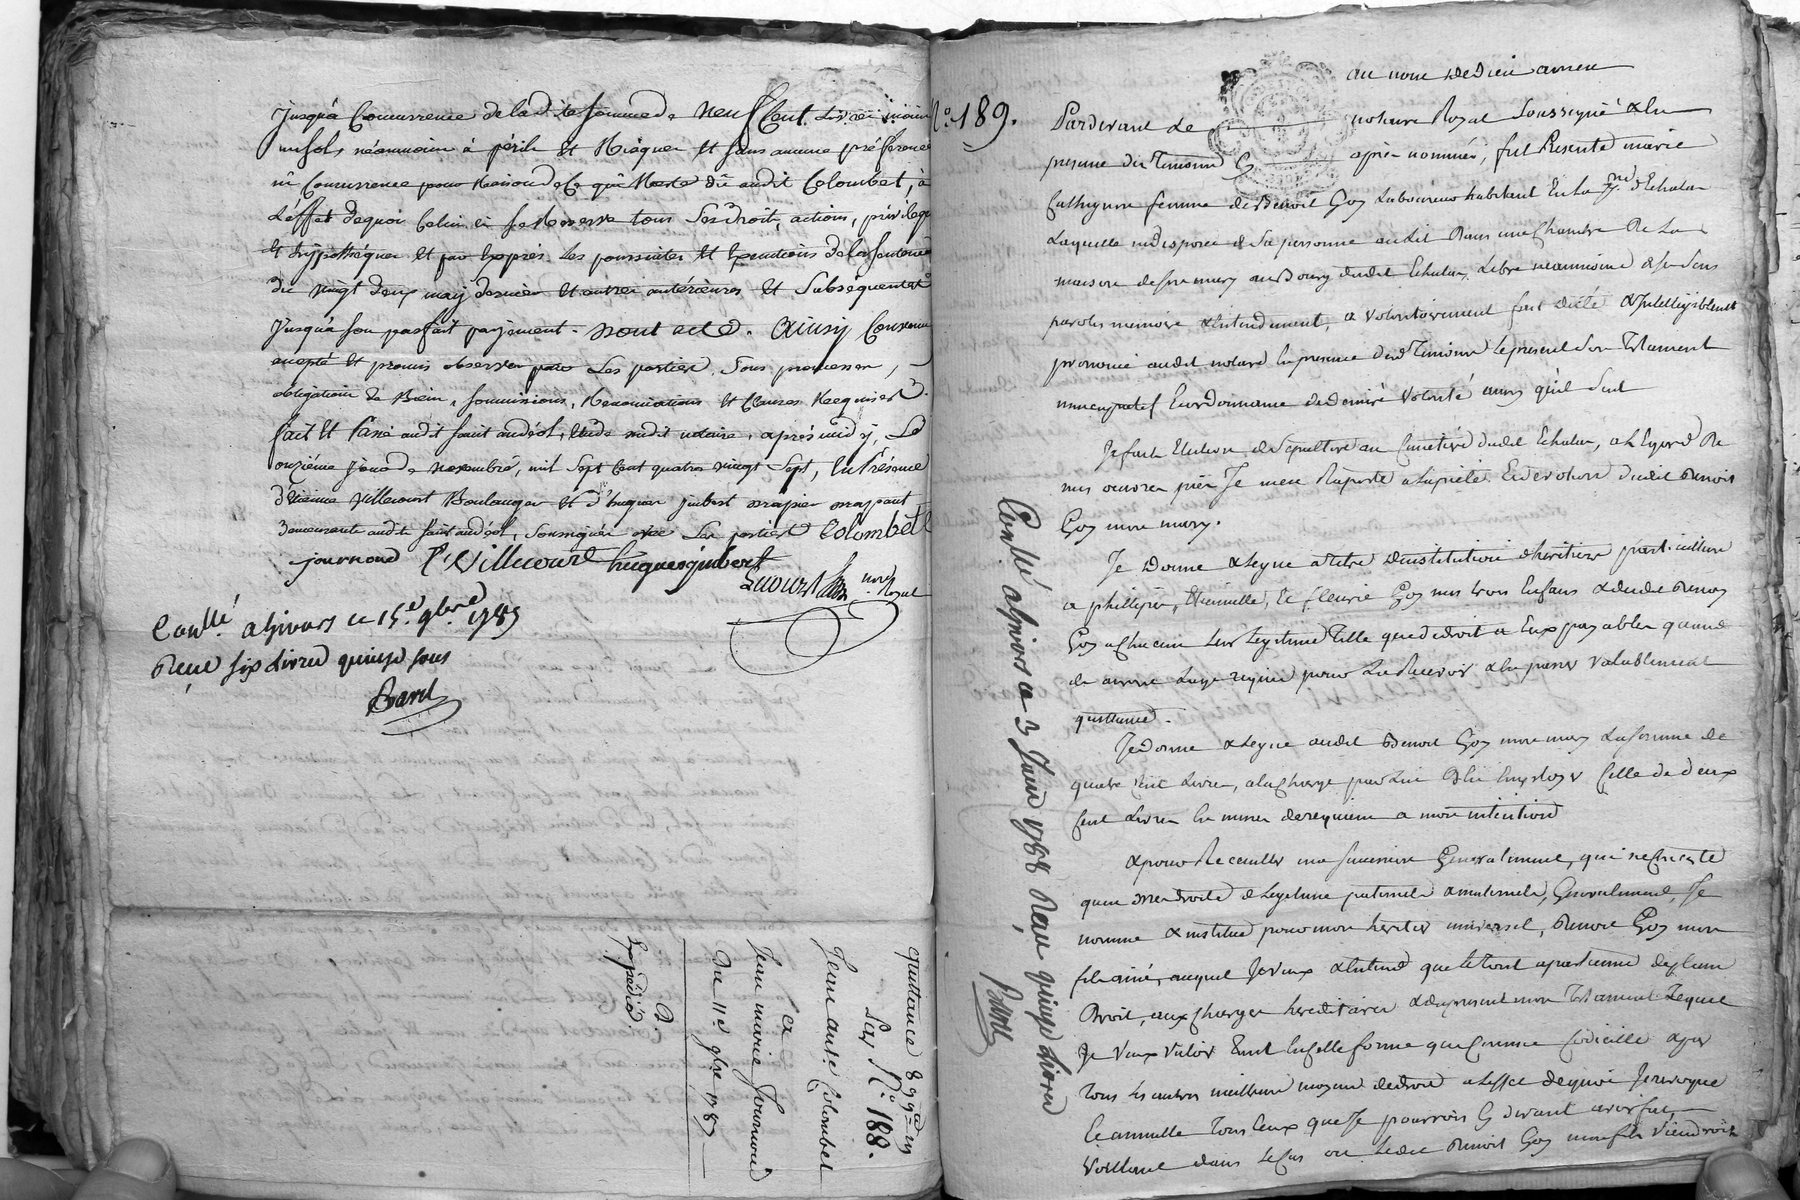 Jusqu'à Concurrence de ladite somme de neuf Cent Livres moins
un sols néanmoins à périls et Risques et sans aucune préférence
ni Concurrence pour Raison de Ce qui Reste dû audit Colombet, à
L'effet de quoi Celui ci se Reserve tous ses droits, actions, privilèges
et hypothéques et par Exprès les poursuites et Exécutions de la sentence
du vingt deux may dernier et autres antérieures et subséquentes
Jusqu'à son parfait payement. Dont acte. Ainsy Convenu
accepté et promis observer par Les parties, sous
obligation de Biens, soumissions, Renonciations et Clauses Requises.
fait et Passé audit saint andéol, Etude dudit notaire, après midy, Le
onzième jour de novembre, mil sept Cent quatre vingt sept, En Présence
d'Etienne Villecourt Boulanger et d'hugues jinbert
demeurants audit saint andéol, soussignés avec Les parties Colombet
journoud E Villecourt hugues jinbert
nore Royal
Conllé a Givors ce 15e 9bre 1787
Reçu six Livres quinze sous
Barel
quittance 899# 19s
Par N° 188.
Jean ante Colombet
a
Jean marie Journoud
Du 11e 9bre 1787
Expédié.
N° 189.
au nom de Dieu amen
Pardevant Le notaire Royal Soussigné & En
presence des Temoins Cy après nommés, fut Presente marie
femme de Benoit Goy Laboureur habitant En La psse d'Echalas
Laquelle indisposée de sa personne audit dans une chambre De La
maison de son mary au Bourg dudit Echalas, Libre neanmoins de ses sens
parole memoire & Entendement, a volontairement fait dicté & Intelligiblement
prononcé audit notaire En presence desd. Temoins Le present son Testament
nuncupatif & ordonnance de derniere volonté ainsy qu'il suit
Je fait Election de sepulture au Cimetière dudit Echalas, a L'Egard De
mes œuvres pies Je m'en Raporte a La pieté & devotion dudit Benoit
Goy mon mary.
Je Donne & Legue a titre D'institution d'heritiere particuliere
a phillipe, Etiennette, & fleurie Goy mes trois Enfans & dudit Benoit
Goy a chacun Leur Legitime Telle que de droit a Eux payables quand
ils auront L'age requis pour La Recevoir & En passer valablement
quittance.
Je donne & Legue audit Benoit Goy mon mary La somme de
quatre Cent Livres, a la charge par Lui D'En Employer Celle de deux
cent Livres En messes de requiem a mon intention
& pour Le Resultat ma succession Generalement, qui ne Consiste
qu'en mes droits de Legitime paternels & maternels, Generalement, Je
nomme & institue pour mon heritier universel, Benoit Goy mon
fils ainé, auquel Je veux & Entend que Le tout apartienne de plein
Droit, aux charges hereditaires & du present mon Testament Lequel
Je veux valoir Soit En Cette forme que Comme Codicille & par
tous Les autres meilleurs moyens de droit a L'effet de quoi Je revoque
& annulle Tous Ceux que Je pourrois Cy devant avoir fait,
Voulant dans Le Cas ou Ledit Benoit Goy mon fils viendroit
Conllé a Givors ce 3 Juin 1788 Reçu quinze Livres
Barel